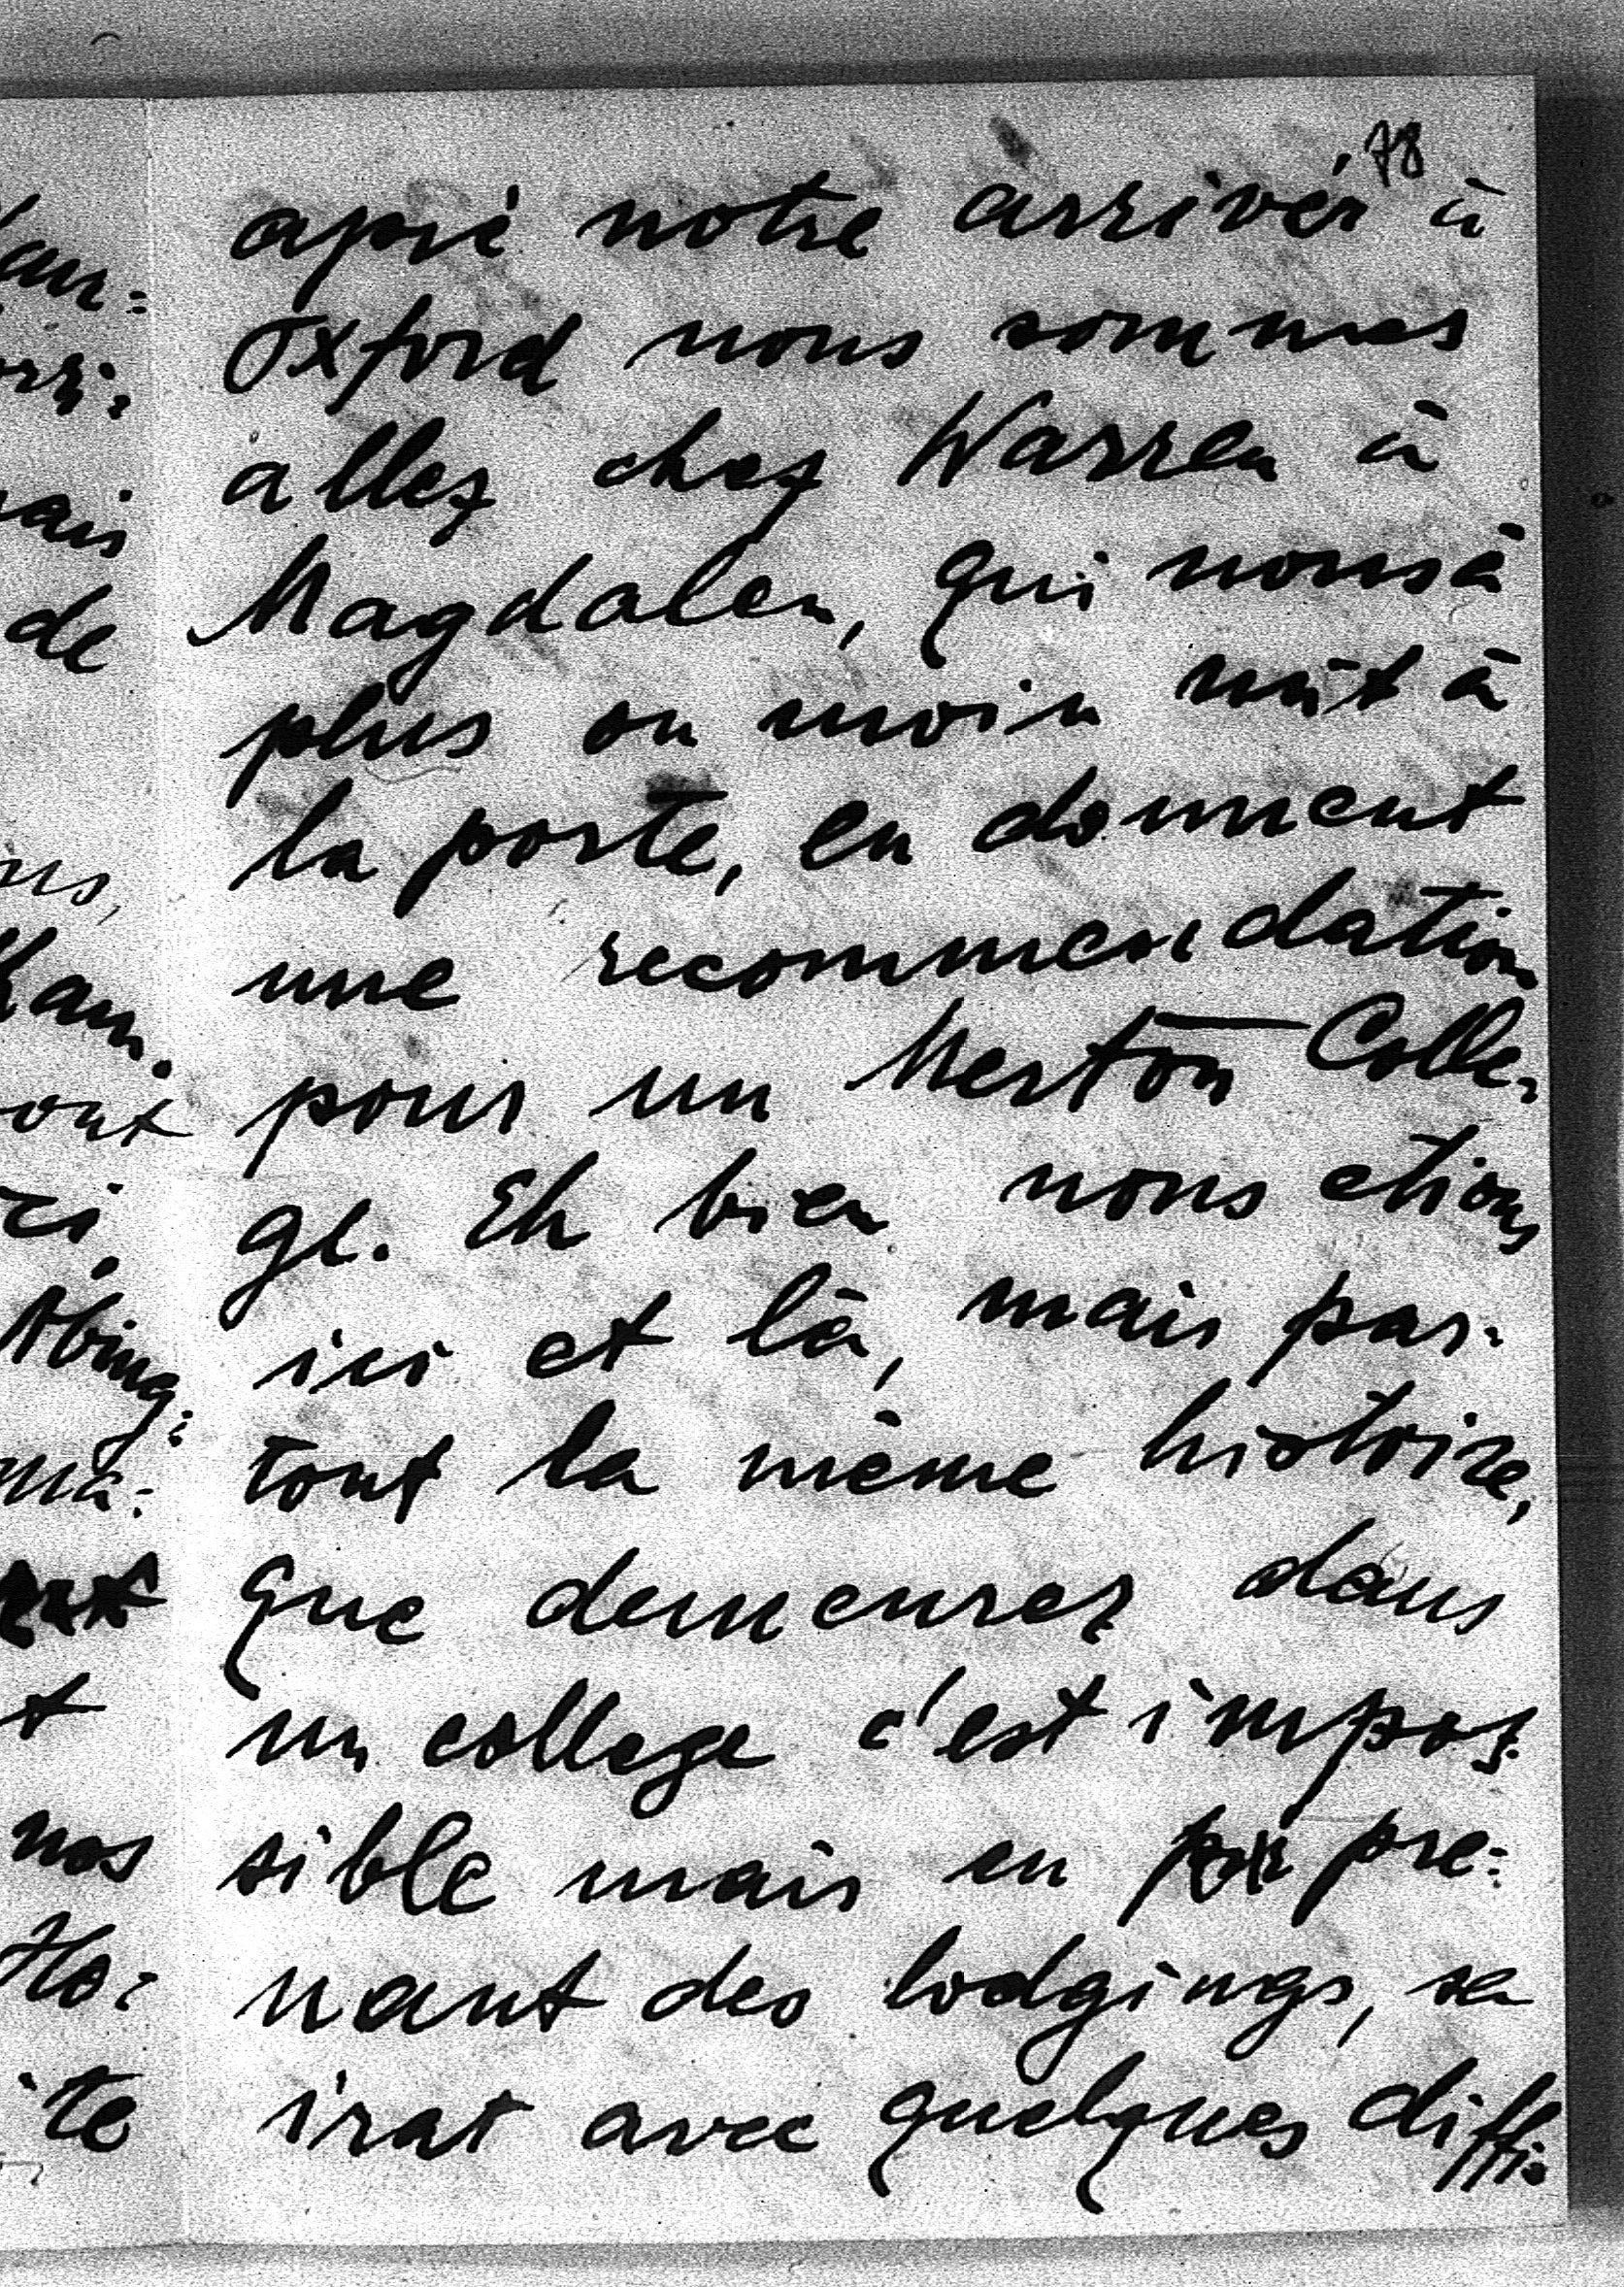 78
aprè notre arrivér à
Oxford nous sommes
allez chez Warren à
Magdalen, qui nous à
plus ou moin mît à
la porte, en donnent
une recommendation
pour un Merton Colle-
ge. Eh bien nous etions
ici et là, mais par-
tout la même histoire,
que demeurer dans
un college c'est impos-
sible mais en pre-
nant des lodgings, sa
irat avec quelques diffi-
ais
de
ns,
Kam-
ont
ci,
Abing-
ma-
t
nos
Ho-
te